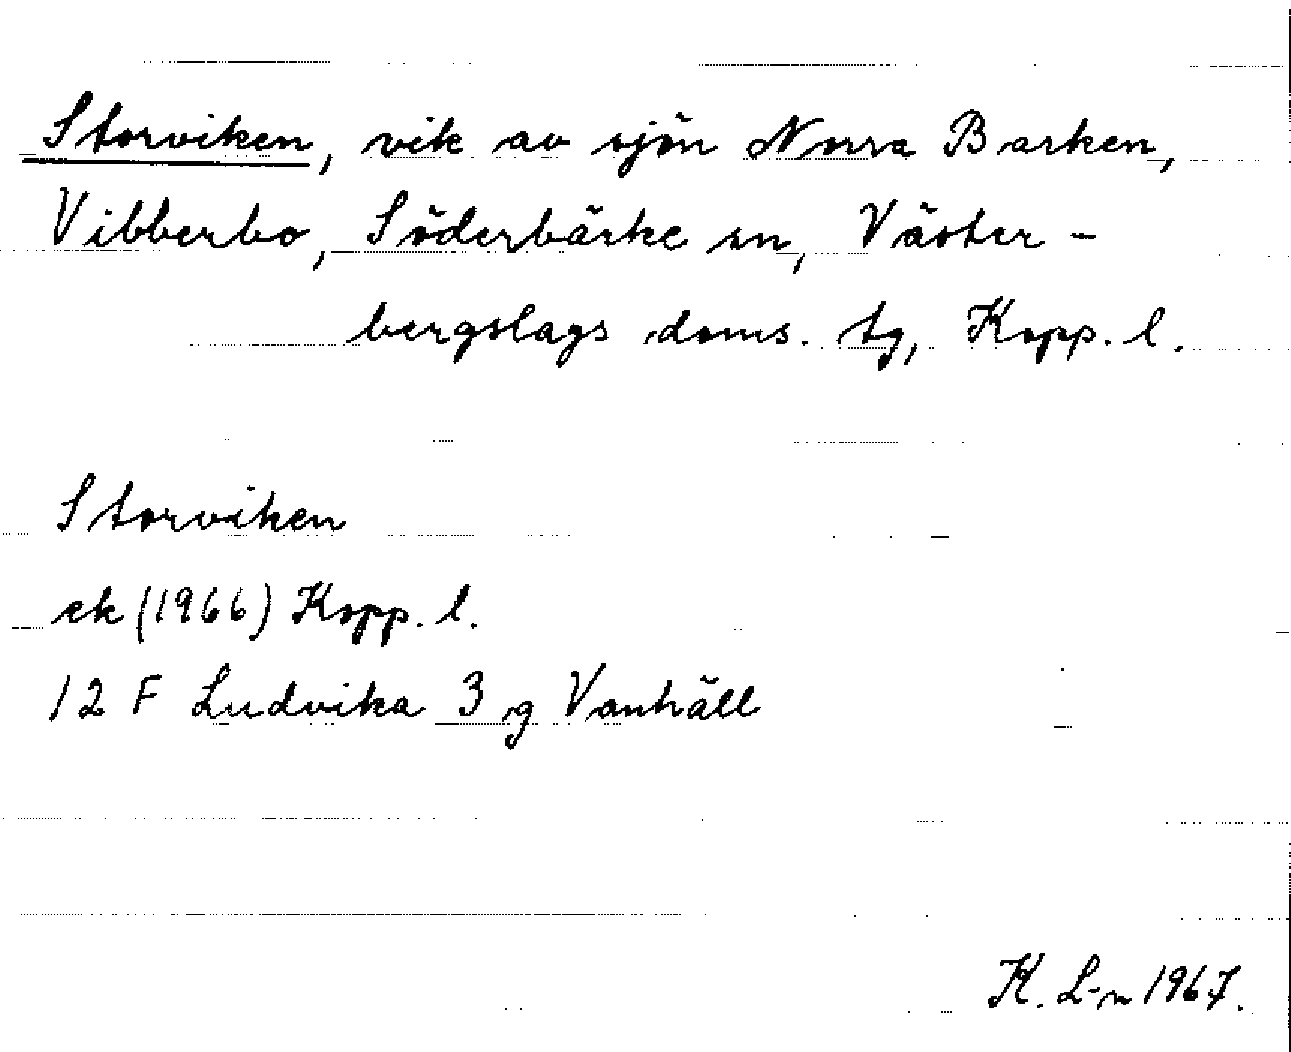 Storviken, vik av sjön Norra Barken,
Vibberbo, Söderbärke sn, Väster-
bergslags doms. tg, Kopp. l.
Storviken
ek (1966) Kopp. l.
12 F Ludvika 3 g Vanhäll
K. L-n 1967.